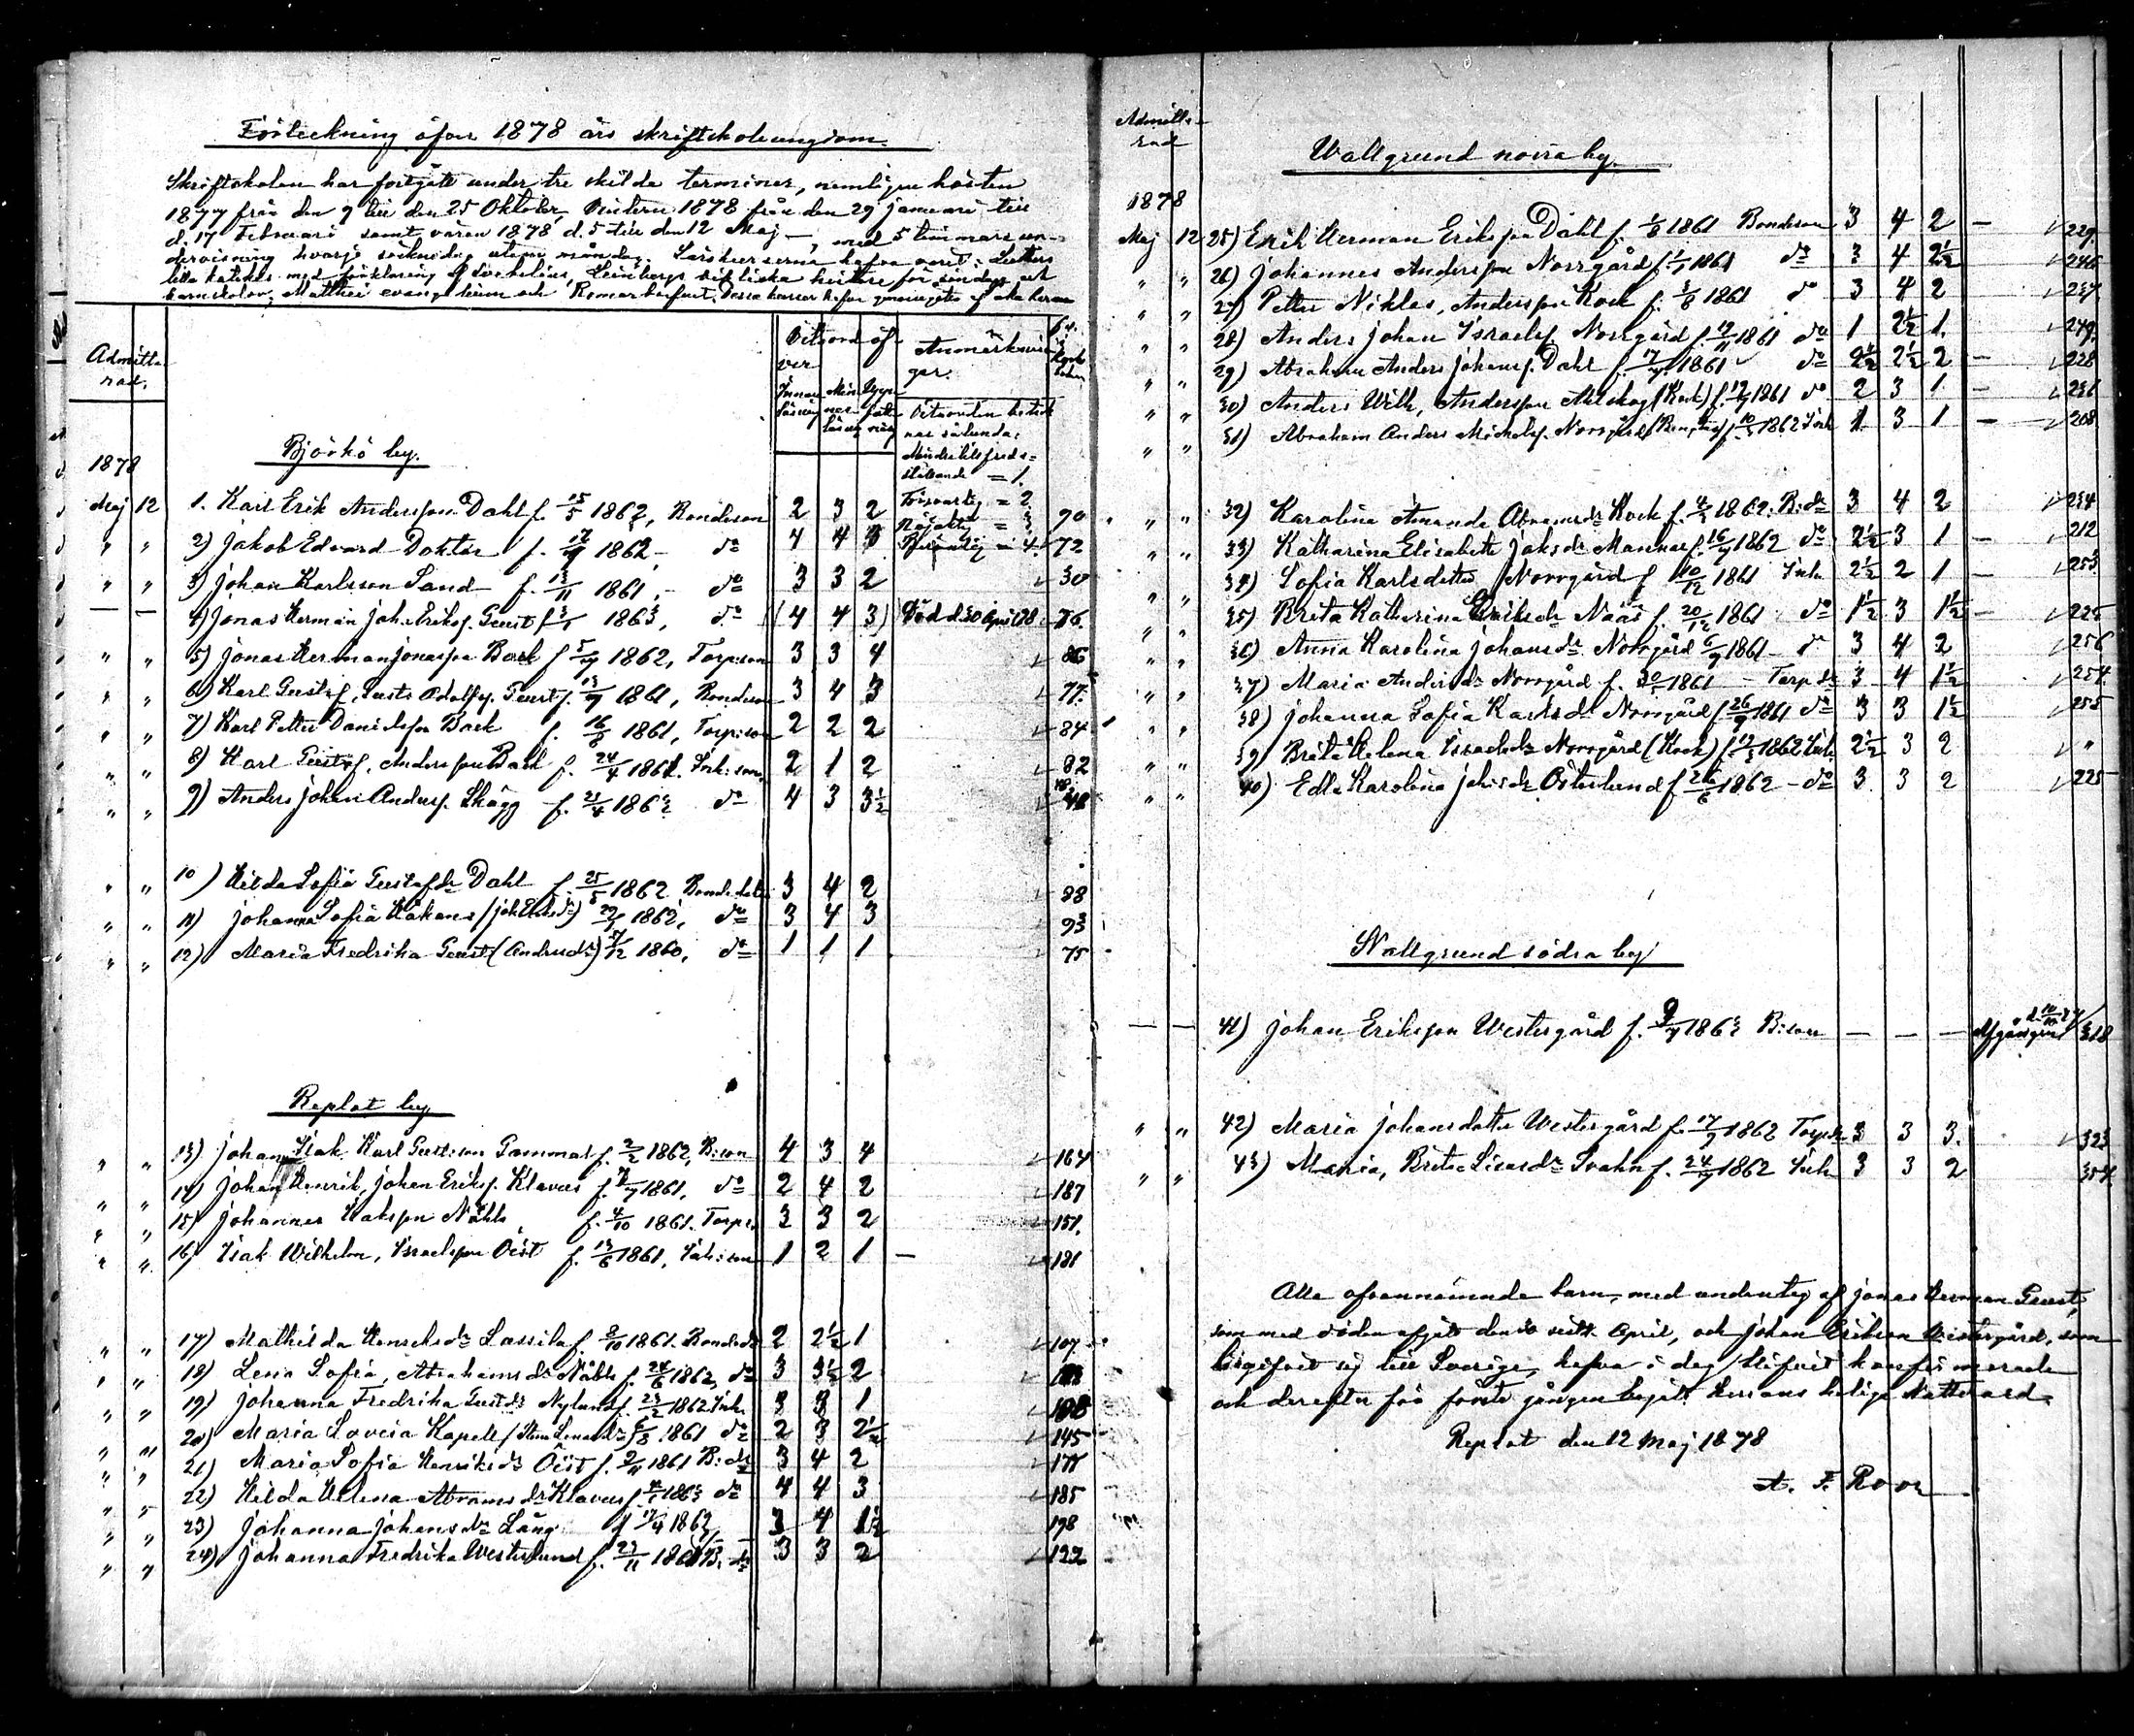 Förteckning öfver 1878 års skriftskoleungdom.
Skriftskolan har fortgått under tre skilda terminer, nemligen hösten
1877 från den 9 till den 25 Oktober, vintern 1878 från den 29 januari till
d. 17 Februari samt våren 1878 d. 5 till den 12 Maj –, med 5 timmars un-
dervisning hvarje söckendag utom måndag. Läskurserna hafva varit: Luthers
lilla katekes med förklaring af Svebelius, Steinbergs bibliska historie för söndags och
barnskolor, Matthei evangelium och Romarbrefvet. Dessa kurser hafva genomgåtts af alla barnen
Admitte-
rad.
Vitsord öf-
ver
Innan-
läsning
Min-
nes-
läsng
Uppe
fatt-
ning
Anmärknin-
gar.
Vitsorden beteck-
nas sålunda:
Mindre tillfreds-
ställande = 1.
Försvarlig = 2
Nöjaktig = 3
Berömlig = 4
1878
Björkö by.
Maj 12 1. Karl Erik Andersson Dahl f. 15/5 1862, Bondeson 2 3 2 70
" " 2) Jakob Edvard Doktar f. 17/9 1862 – d:o 4 4 3 72
" " 3) Johan Karlsson Sand f. 13/11 1861, – d:o 3 3 2 30
— — 4) Jonas Herman Joh. Eriks. Geust f. 3/1 1863, d:o (4 4 3) Död d. 30 April 78 76.
" " 5) Jonas Herman Jonasson Back f. 5/9 1862, Torp:son 3 3 4 86
" " 6) Karl Gustaf, Gust. Adolfss. Geust f. 13/9 1861, Bondeson 3 4 3 77.
" " 7) Karl Petter Danielsson Back f. 16/8 1861, Torp:son 2 2 2 84
" " 8) Karl Gustaf, Andersson Back f. 24/4 1861. Inh: son 2 1 2 82
" " 9) Anders Johan Anderss. Skägg f. 21/4 1862 d:o 4 3 3½
" " 10) Hilda Sofia Gustafsdr Dahl f. 25/5 1862 Bondedotter 3 4 2 88
" " 11) Johanna Sofia Håkans (Joh. Eriksdr) 29/9 1862, d:o 3 4 3 93
" " 12) Maria Fredrika Geust (Andersdr) 17/12 1860, d:o 1 1 1 75
Replot by
" " 13) Johan Isak Karl Gustsson Gammal f. 2/2 1862, B:son 4 3 4 164
" " 14) Johan Henrik, Johan Eriks. Klavus f. 17/9 1861, d:o 2 4 2 187
" " 15) Johannes Isaksson Nabb f. 4/10 1861. Torps. 3 3 2 151.
" " 16) Isak Wilhelm, Israelsson Öist f. 13/6 1861, Inh:son 1 2 1 — 181
" " 17) Mathilda Henriksdr Lassila f. 8/10 1861. Bondedr 2 2½ 1 107
" " 18) Lena Sofia, Abrahamsdr Nabb f. 24/6 1862, d:o 3 3½ 2
" " 19) Johanna Fredrika Gustdr Nylund f. 23/2 1862 Inh. 3 3 1
" " 20) Maria Lovisa Kapell (Stina Lenasdr) 6/8 1861 d:o 2 3 2½ 145
" " 21) Maria Sofia Henriksdr Öist f. 9/11 1861 B:dr 3 4 2 177
" " 22) Hilda Helena Abramsdr Klavus f. 1863 d:o 4 4 3 185
" " 23) Johanna Johansdr Lång f. 17/4 1862 3 4 1½ 198
" " 24) Johanna Fredrika Westerlund f. 23/11 1861 B. dr 3 3 2 122
Admitte-
rad
Wallgrund norra by.
1878
Maj 12 25) Erik Herman Eriksson Dahl f. 1/8 1861 Bondeson 3 4 2 — 229.
" " 26) Johannes Andersson Norrgård f. 1861 d:o 3 4 2½ 246
" " 27) Petter Niklas, Andersson Kock f. 3/8 1861 d:o 3 4 2 237
" " 28) Anders Johan Israels. Norrgård f. 19/11 1861 d:o 1 2½ 1. 249.
" " 29) Abraham Anders Johans. Dahl f. 17/9 1861 d:o 2½ 2½ 2 — 228
" " 30) Anders Wilh. Andersson Ahlskog (Kock) f. 1861 d:o 2 3 1 — 236
" " 31) Abraham Anders Michels. Norrgård f. 10/3 1862 Inh 1 3 1 — 208
" " 32) Karolina Amanda Abramsdr Kock f. 4/2 1862. B:dr 3 4 2 234
" " 33) Katharina Elisabeth Jaksdr Mannas f. 16/9 1862 d:o 2½ 3 1 — 212
" " 34) Sofia Karlsdotter Norrgård f. 10/12 1861 Inh. 2½ 2 1 — 253
" " 35) Brita Katharina Eriksdr Näās f. 20/12 1861 d:o 1½ 3 1½ — 225
" " 36) Anna Karolina Johansdr Norrgård 6/9 1861 – d:o 3 4 2 256
" " 37) Maria Andersdr Norrgård f. 1861 – Torpdr 3 4 1½ 254
" " 38) Johanna Sofia Karlsdr Norrgård f. 26/9 1861 d:o 3 3 1½ 255
" " 39) Brita Helena Israelsdr Norrgård (Kock) f. 1862 Inh. 2½ 3 2 "
" " 40) Edla Karolina Johsdr Österlund f. 26/6 1862 – d:o 3 3 2 225
Wallgrund södra by
— — 41) Johan Eriksson Westergård f. 9/9 1863 B:son — — — afgången 318
" " 42) Maria Johansdotter Westergård f. 17/9 1862 Torpdr 3 3 3. 323
" " 43) Maria, Brita Lisasdr Svahn f. 24/9 1862 Inh 3 3 2 354
Alla ofvannämnda barn, med undantag af Jonas Herman Geust,
som med döden afgått den 30 sistl. April, och Johan Eriksson Westergård, som
begifvit sig till Sverige, hafva i dag blifvit konfirmerade
och derefter för första gången begått Herrans heliga Nattvard.
Replot den 12 Maj 1878
A. F. Roos